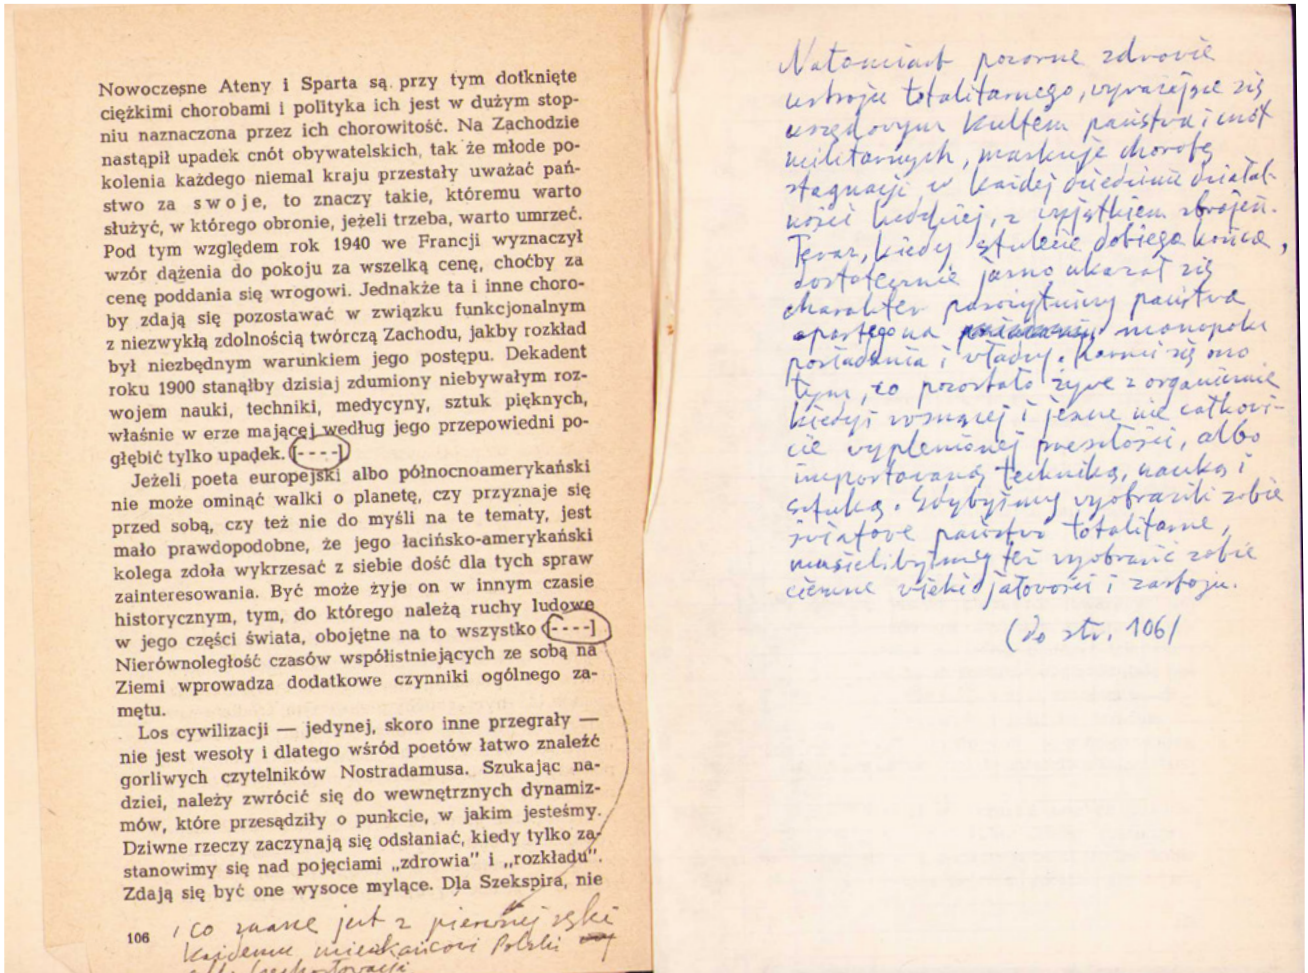 Nowoczesne Ateny i Sparta są przy tym dotknięte
ciężkimi chorobami i polityka ich jest w dużym stop-
niu naznaczona przez ich chorowitość. Na Zachodzie
nastąpił upadek cnót obywatelskich, tak że młode po-
kolenia każdego niemal kraju przestały uważać pań-
stwo za s w o j e, to znaczy takie, któremu warto
służyć, w którego obronie, jeżeli trzeba, warto umrzeć.
Pod tym względem rok 1940 we Francji wyznaczył
wzór dążenia do pokoju za wszelką cenę, choćby za
cenę poddania się wrogowi. Jednakże ta i inne choro-
by zdają się pozostawać w związku funkcjonalnym
z niezwykłą zdolnością twórczą Zachodu, jakby rozkład
był niezbędnym warunkiem jego postępu. Dekadent
roku 1900 stanąłby dzisiaj zdumiony niebywałym roz-
wojem nauki, techniki, medycyny, sztuk pięknych,
właśnie w erze mającej według jego przepowiedni po-
głębić tylko upadek. [----]
Jeżeli poeta europejski albo północnoamerykański
nie może ominąć walki o planetę, czy przyznaje się
przed sobą, czy też nie do myśli na te tematy, jest
mało prawdopodobne, że jego łacińsko-amerykański
kolega zdoła wykrzesać z siebie dość dla tych spraw
zainteresowania. Być może żyje on w innym czasie
historycznym, tym, do którego należą ruchy ludowe
w jego części świata, obojętne na to wszystko [----]
Nierównoległość czasów współistniejących ze sobą na
Ziemi wprowadza dodatkowe czynniki ogólnego za-
mętu.
Los cywilizacji — jedynej, skoro inne przegrały —
nie jest wesoły i dlatego wśród poetów łatwo znaleźć
gorliwych czytelników Nostradamusa. Szukając na-
dziei, należy zwrócić się do wewnętrznych dynamiz-
mów, które przesądziły o punkcie, w jakim jesteśmy.
Dziwne rzeczy zaczynają się odsłaniać, kiedy tylko za-
stanowimy się nad pojęciami „zdrowia" i „rozkładu".
Zdają się być one wysoce mylące. Dla Szekspira, nie
106
, co znane jest z pierwszej ręki
każdemu mieszkańcowi Polski
Natomiast pozorne zdrowie
ustroju totalitarnego, wyrażające się
urzędowym kultem państwa i cnót
militarnych, maskuje chorobę
stagnacji w każdej dziedzinie działal-
ności ludzkiej, z wyjątkiem zbrojeń.
Teraz, kiedy stulecie dobiega końca,
dostatecznie jasno ukazał się
charakter pasożytniczy państwa
opartego na monopolu
posiadania i władzy. Karmi się ono
tym, co pozostało żywe z organicznie
kiedyś rosnącej i jeszcze nie całkowi-
cie wyplenionej przeszłości, albo
importowaną techniką, nauką i
sztuką. Gdybyśmy wyobrazili sobie
światowe państwo totalitarne,
musielibyśmy też wyobrazić sobie
ciemne wieki jałowości i zastoju.
(do str. 106)